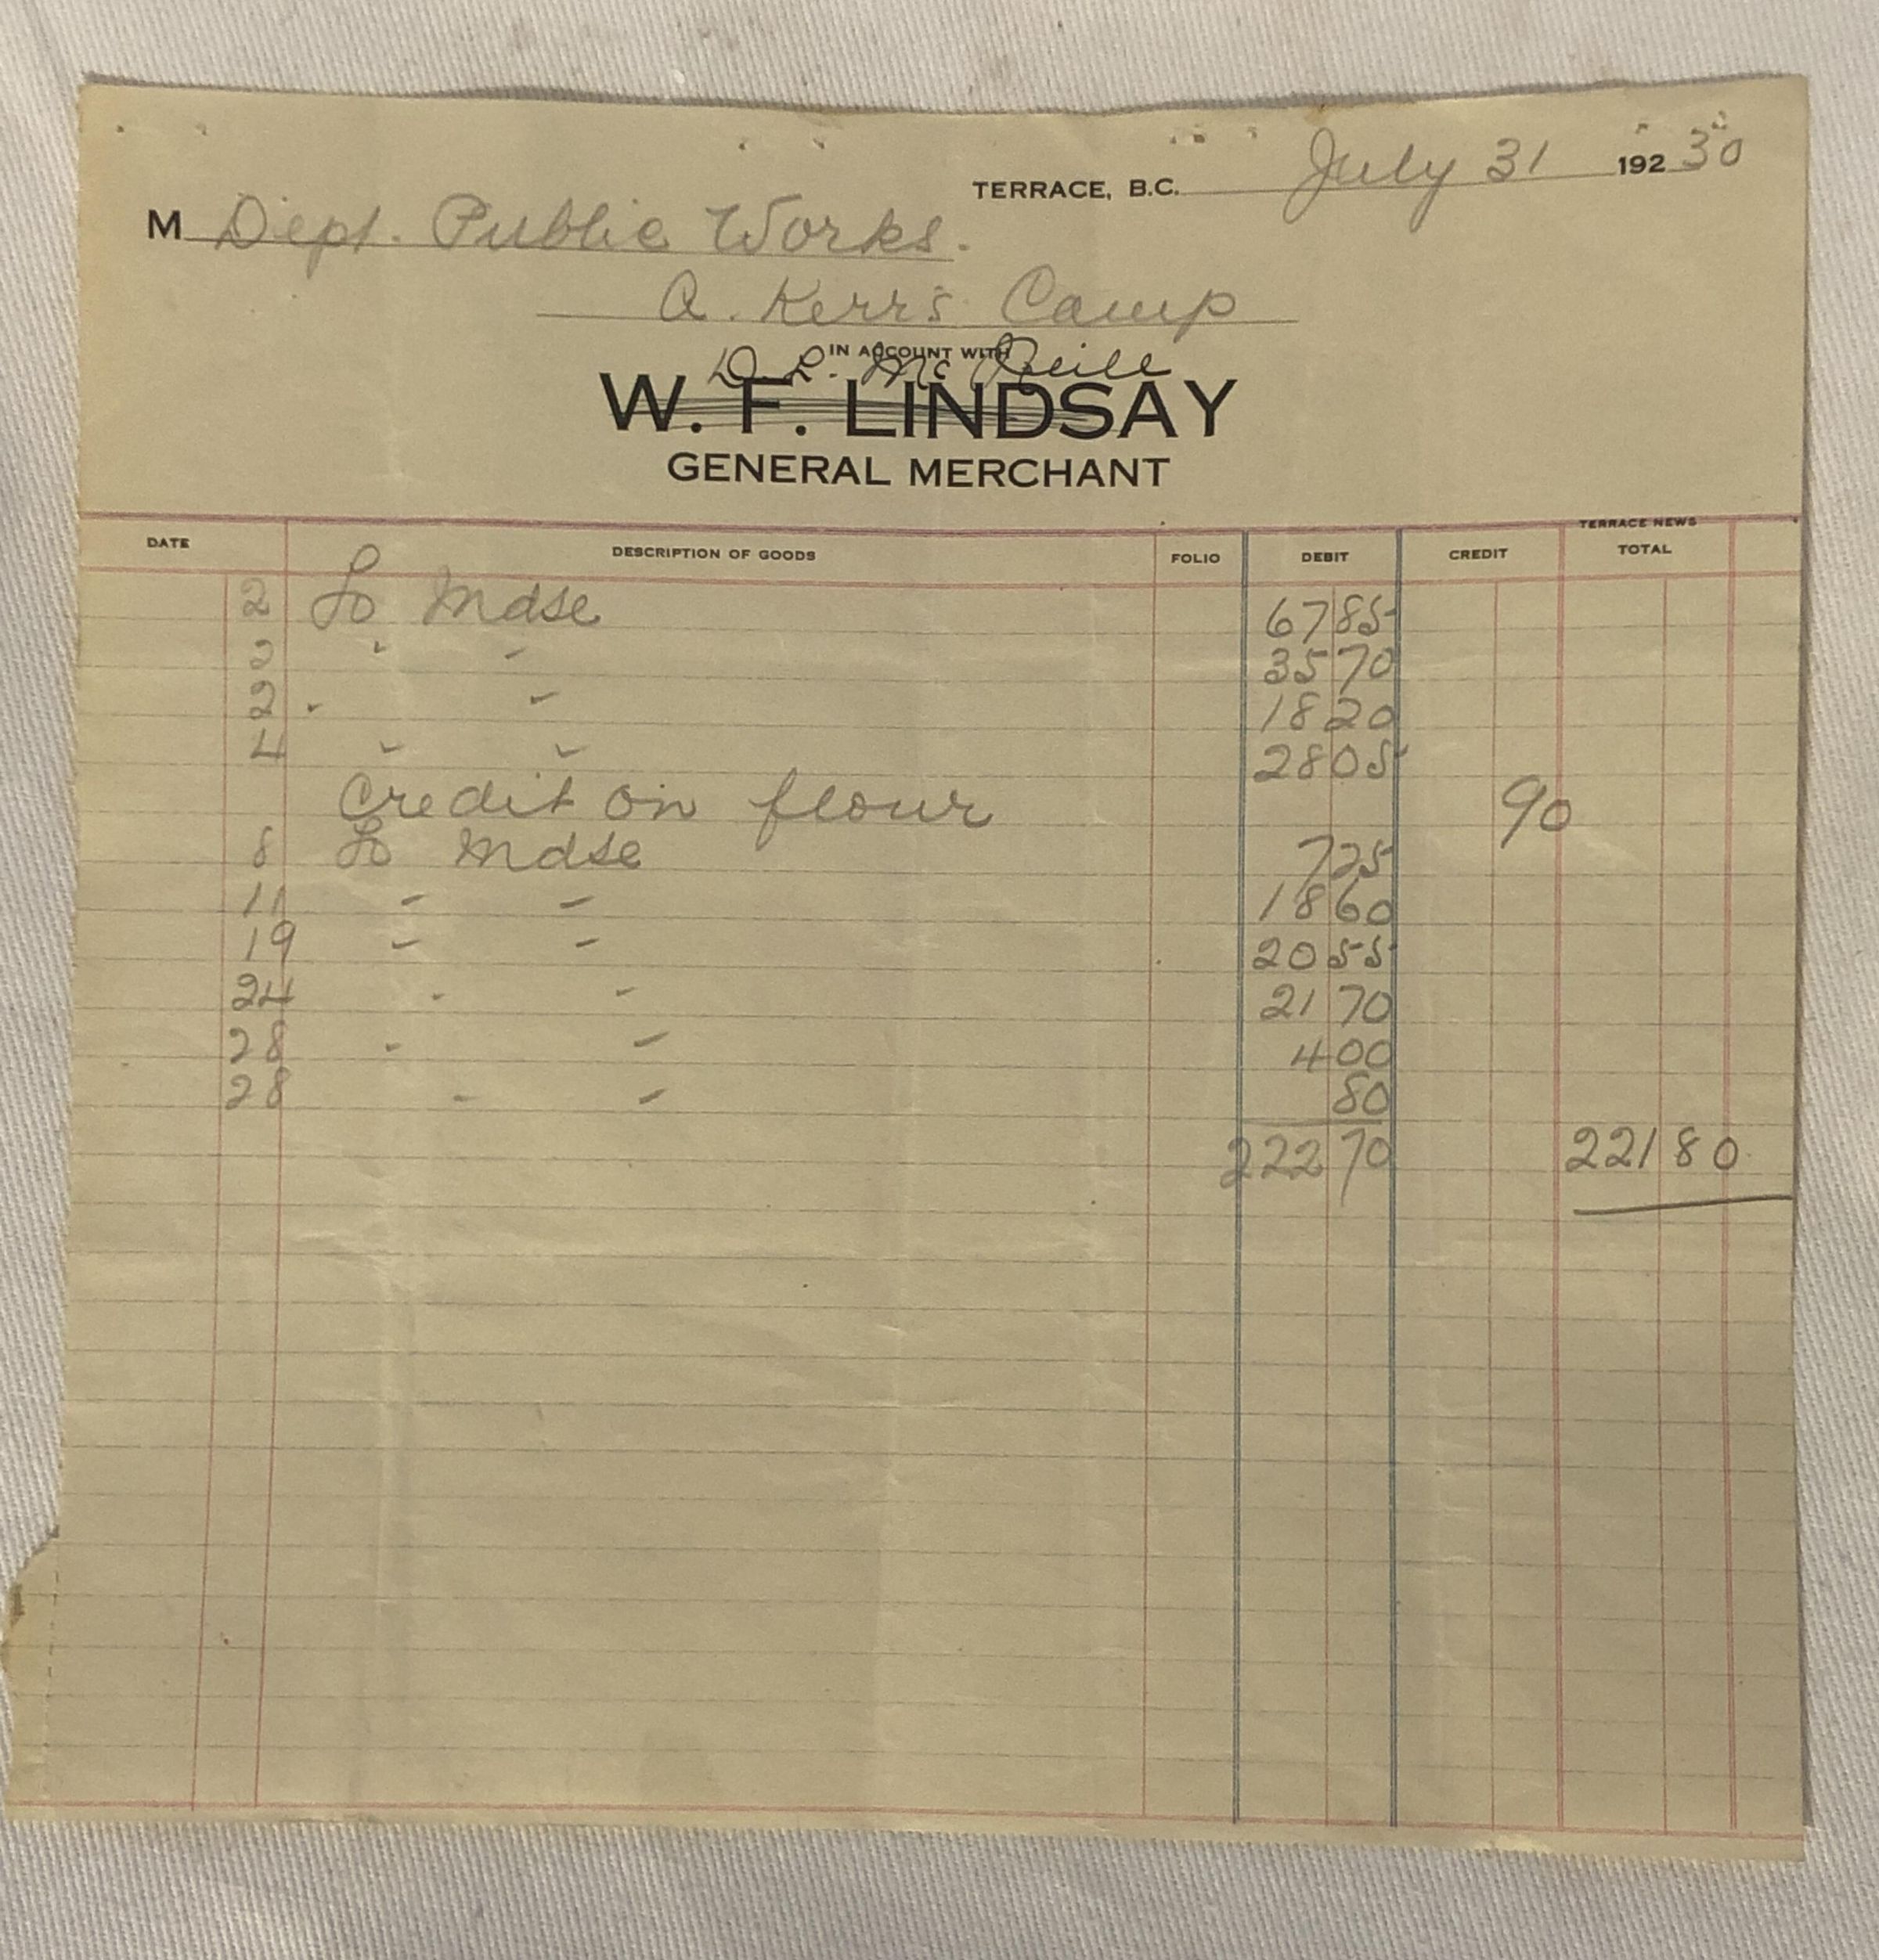 TERRACE, B.C. July 31 192 30
M Dept. Public Works.
A. Kerr's Camp
IN ACCOUNT WITH
D. L. McNeill
W. F. LINDSAY
GENERAL MERCHANT
TERRACE NEWS
DATE DESCRIPTION OF GOODS FOLIO DEBIT CREDIT TOTAL
2 To Mdse 67 85
2 " " 35 70
2 " " 18 20
4 " " 28 05
Credit on flour 90
8 To Mdse 7 25
11 " " 18 60
19 " " 20 55
24 " " 21 70
28 " " 4 00
28 " " 80
222 70 221 80